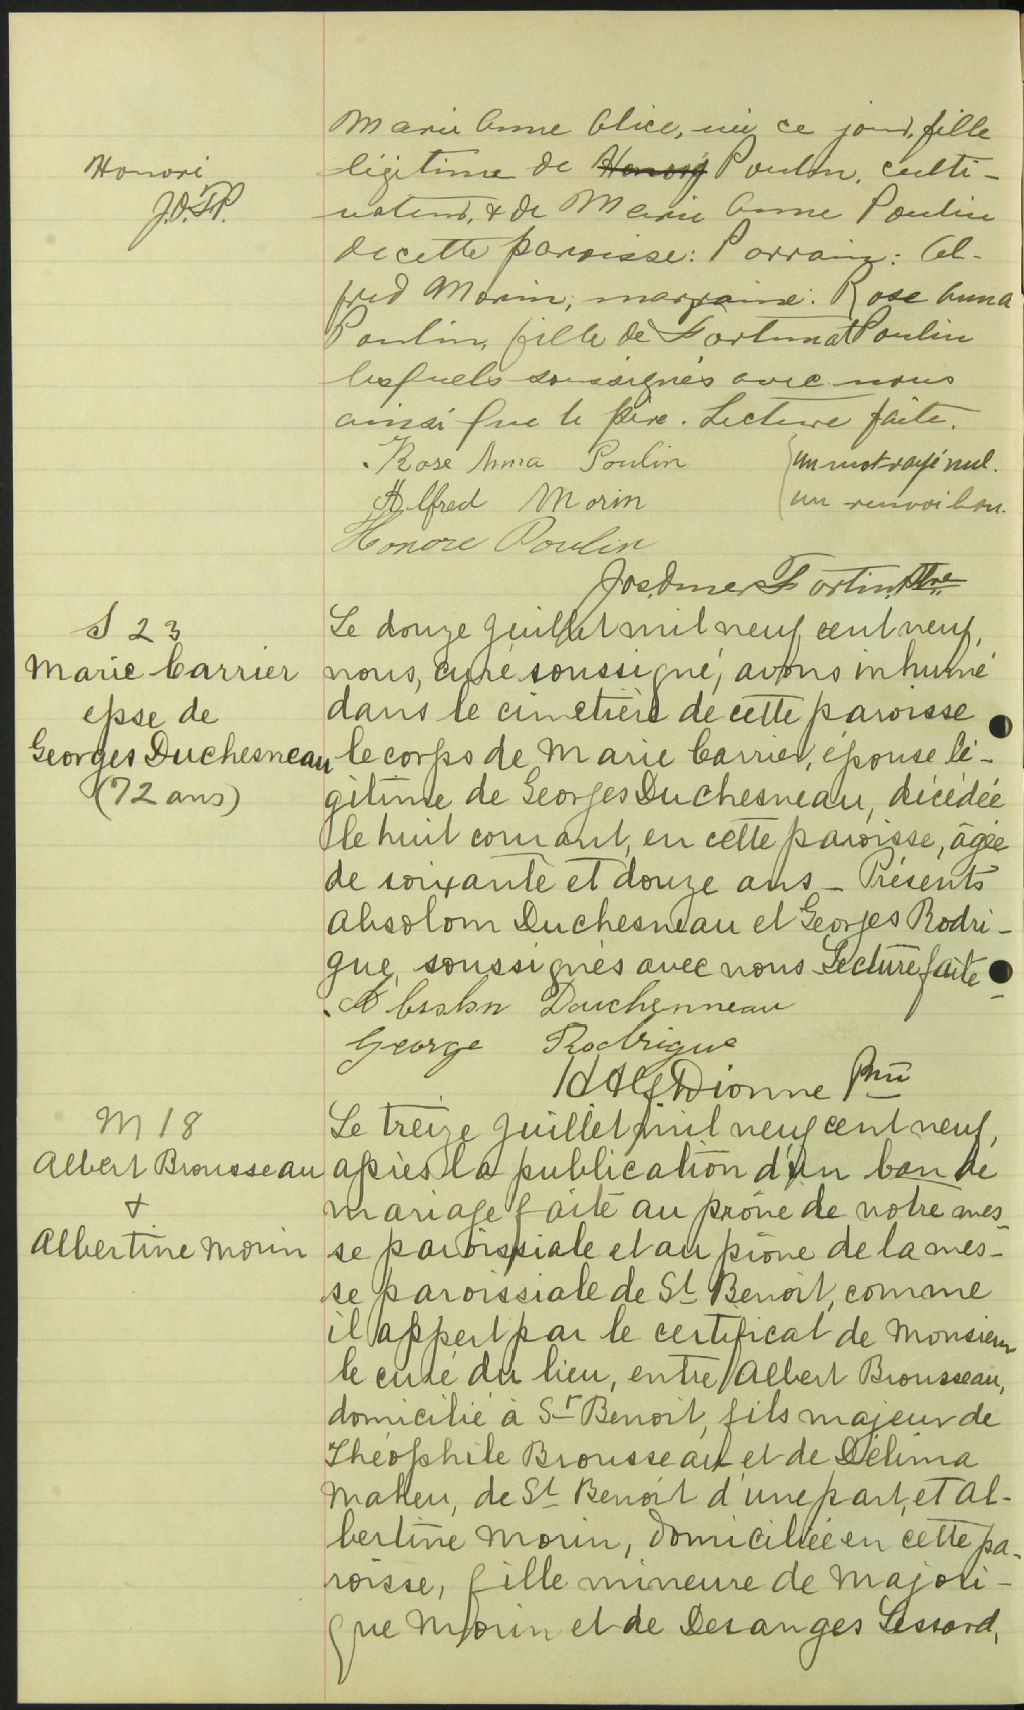 Marie Anne Alice, née ce jour, fille
Honoré
légitime de Poulin, culti-
J.O.F.P.
vateur, & de Marie Anne Poulin
de cette paroisse: Parrain: Al-
fred Morin; marraine: Rose Anna
Poulin, fille de Fortunat Poulin
lesquels soussignés avec nous
ainsi que le père. Lecture faite.
Rose Anna Poulin
un mot rayé nul.
Alfred Morin
un renvoi bon.
Honore Poulin
Jos. Omer Fortin, Ptre
S 23
Marie Carrier
epse de
Georges Duchesneau
(72 ans)
Le douze Juillet mil neuf cent neuf,
nous, curé soussigné, avons inhumé
dans le cimetière de cette paroisse
le corps de Marie Carrier, épouse lé-
gitime de Georges Duchesneau, décédée
le huit courant, en cette paroisse, âgée
de soixante et douze ans - Présents
Absolom Duchesneau et Georges Rodri-
gue, soussignés avec nous Lecture faite -
Duchenneau
George Rodrigue
Dionne Ptre
M 18
Albert Brousseau
&
Albertine Morin
Le treize Juillet mil neuf cent neuf,
après la publication d'un ban de
mariage faite au prône de notre mes-
se paroissiale et au prône de la mes-
se paroissiale de St Benoit, comme
il appert par le certificat de Monsieur
le curé du lieu, entre Albert Brousseau,
domicilié à St Benoit, fils majeur de
Théophile Brousseau et de Délima
Maheu, de St Benoit d'une part, et Al-
bertine Morin, domiciliée en cette pa-
roisse, fille mineure de Majori-
que Morin et de Desanges Lessard,